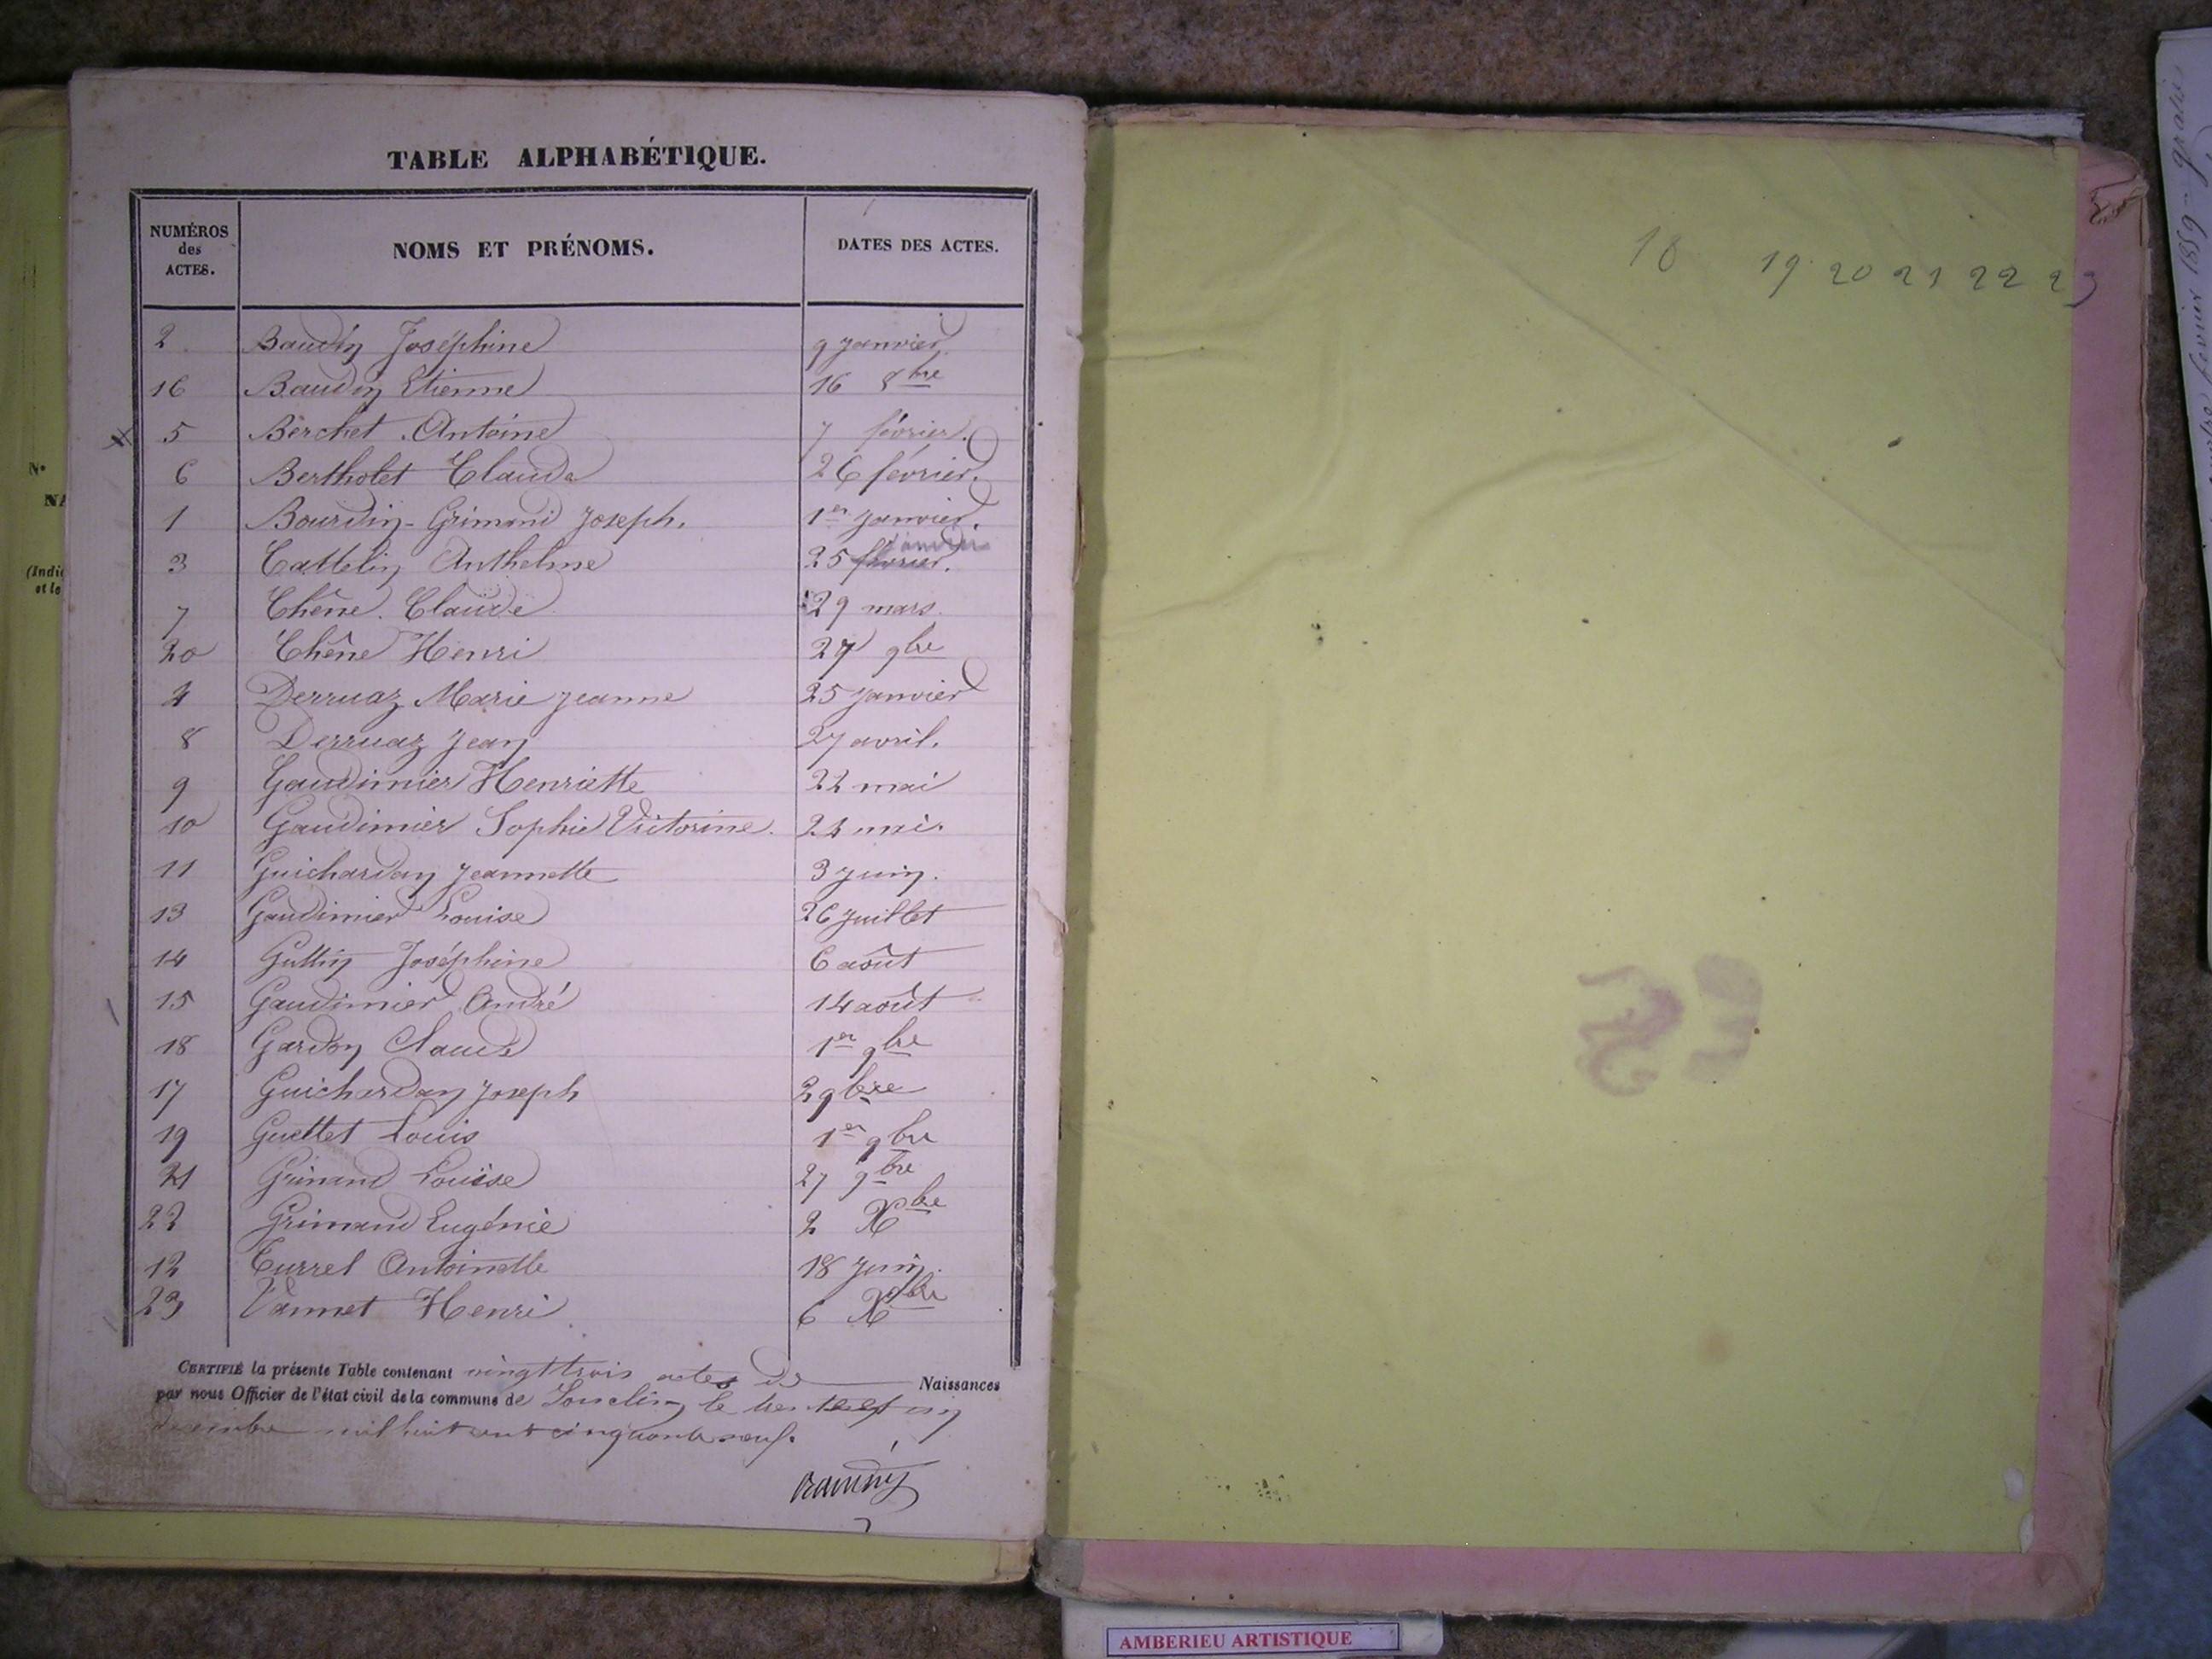 TABLE ALPHABÉTIQUE.
NUMÉROS des ACTES. NOMS ET PRÉNOMS. DATES DES ACTES.
2 Baudin Joséphine 9 janvier
16 Baudin Etienne 16 8bre
5 Berchet Antoine 7 février.
6 Bertholet Claude 26 février.
1 Bourdin-Grimand Joseph. 1er janvier.
janvier
3 Cattelin Anthelme 25 février.
7 Chêne Claude 29 mars.
20 Chêne Henri 27 9bre
4 Derruaz Marie Jeanne 25 janvier
8 Derruaz Jean 27 avril.
9 Gaudinier Henriette 22 mai
10 Gaudinier Sophie Victorine. 24 mai.
11 Guichardan Jeannette 3 juin.
13 Gaudinier Louise 26 juillet
14 Guttin Joséphine 6 août
15 Gaudinier André 14 août
18 Gardon Claude 1er 9bre
17 Guichardan Joseph 2 9bre
19 Guettet Louis 1er 9bre
21 Grimand Louise 27 9bre
22 Grimand Eugénie 2 Xbre
12 Turrel Antoinette 18 juin.
23 Vannet Henri 6 Xbre
CERTIFIÉ la présente Table contenant vingt trois actes de Naissances
par nous Officier de l'état civil de la commune de Souclin, le trente et un
décembre mil huit cent cinquante neuf.
Baudin
18 19 20 21 22 23
N°
NA
(Indi
et le
février 1859 - gratis
AMBERIEU ARTISTIQUE